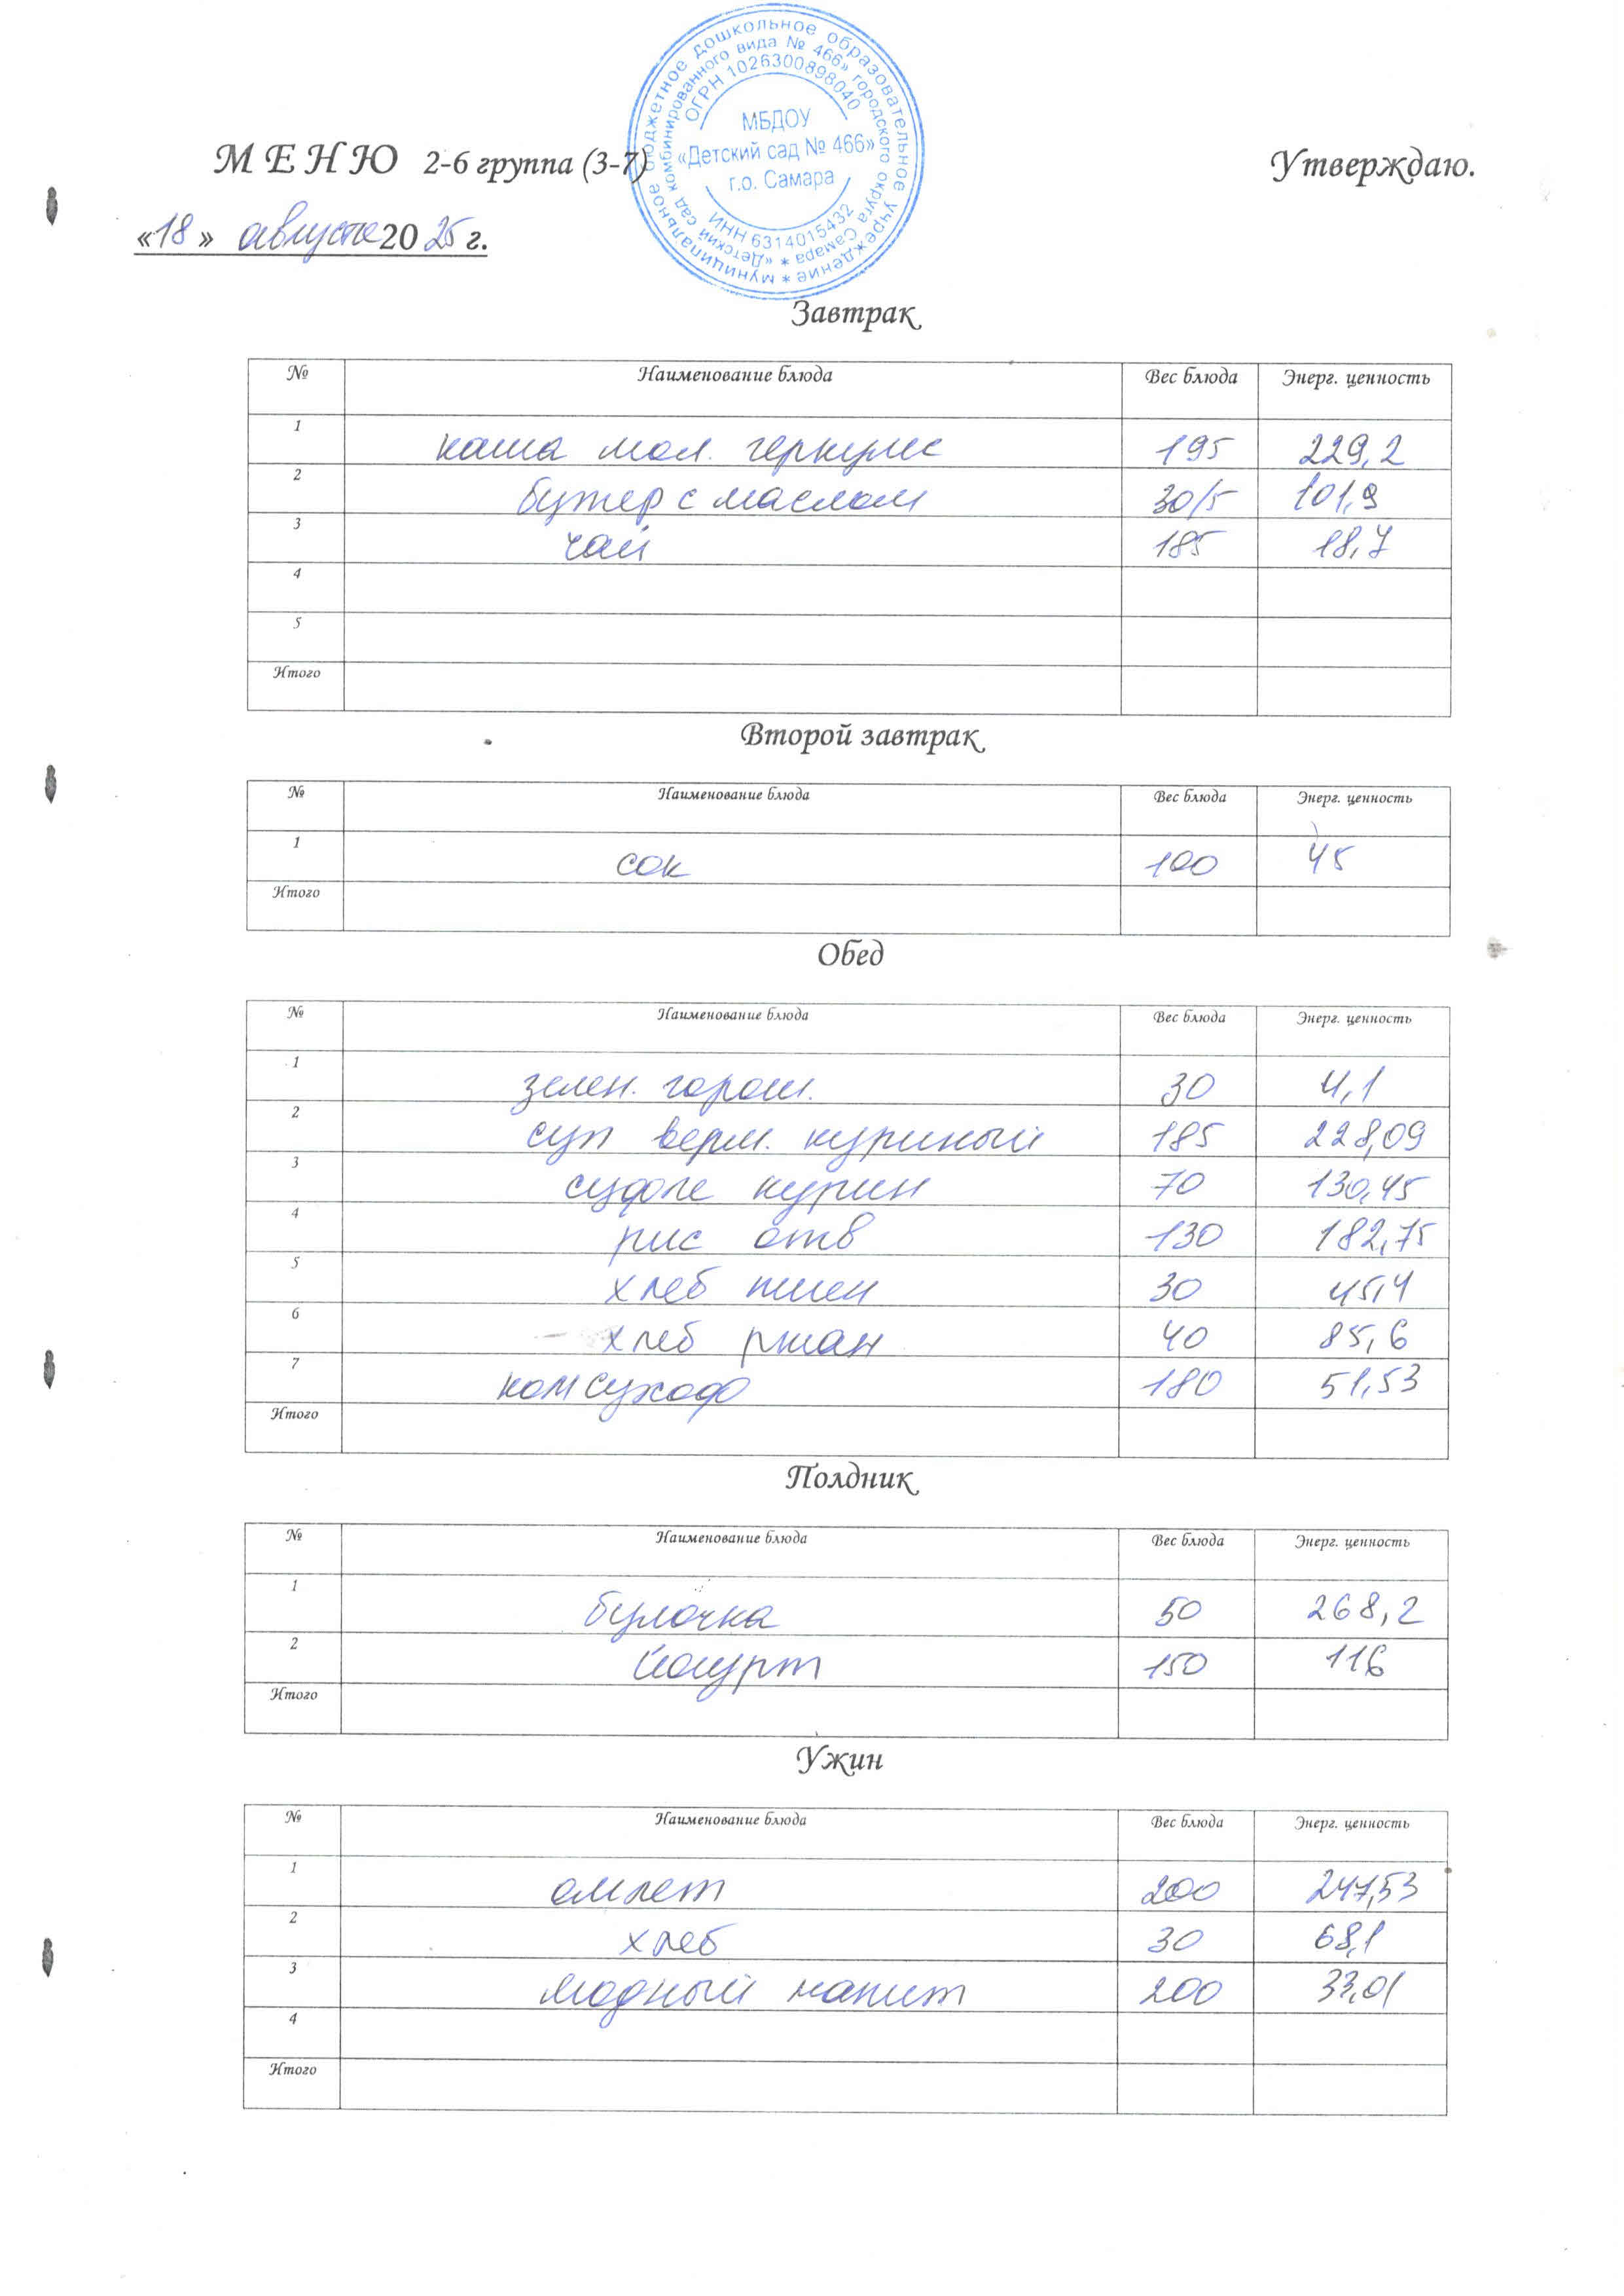 муниципальное бюджетное дошкольное образовательное учреждение *
«Детский сад комбинированного вида № 466» городского округа Самара *
ОГРН 1026300898040
МБДОУ
«Детский сад № 466»
г.о. Самара
ИНН 6314015432
М Е Н Ю 2-6 группа (3-7) Утверждаю.
«18» августа 2025 г.
Завтрак
№ Наименование блюда Вес блюда Энерг. ценность
1 каша мол. геркулес 195 229,2
2 бутер с маслом 30/5 101,9
3 чай 185 18,7
4
5
Итого
Второй завтрак
№ Наименование блюда Вес блюда Энерг. ценность
1 сок 100 45
Итого
Обед
№ Наименование блюда Вес блюда Энерг. ценность
1 зелен. горош. 30 4,1
2 суп верм. куриный 185 228,09
3 суфле курин 70 130,45
4 рис отв 130 182,75
5 хлеб пшен 30 45,4
6 хлеб ржан 40 85,6
7 ком сухофр 180 51,53
Итого
Полдник
№ Наименование блюда Вес блюда Энерг. ценность
1 булочка 50 268,2
2 йогурт 150 116
Итого
Ужин
№ Наименование блюда Вес блюда Энерг. ценность
1 омлет 200 247,53
2 хлеб 30 68,1
3 напит 200 33,01
4
Итого